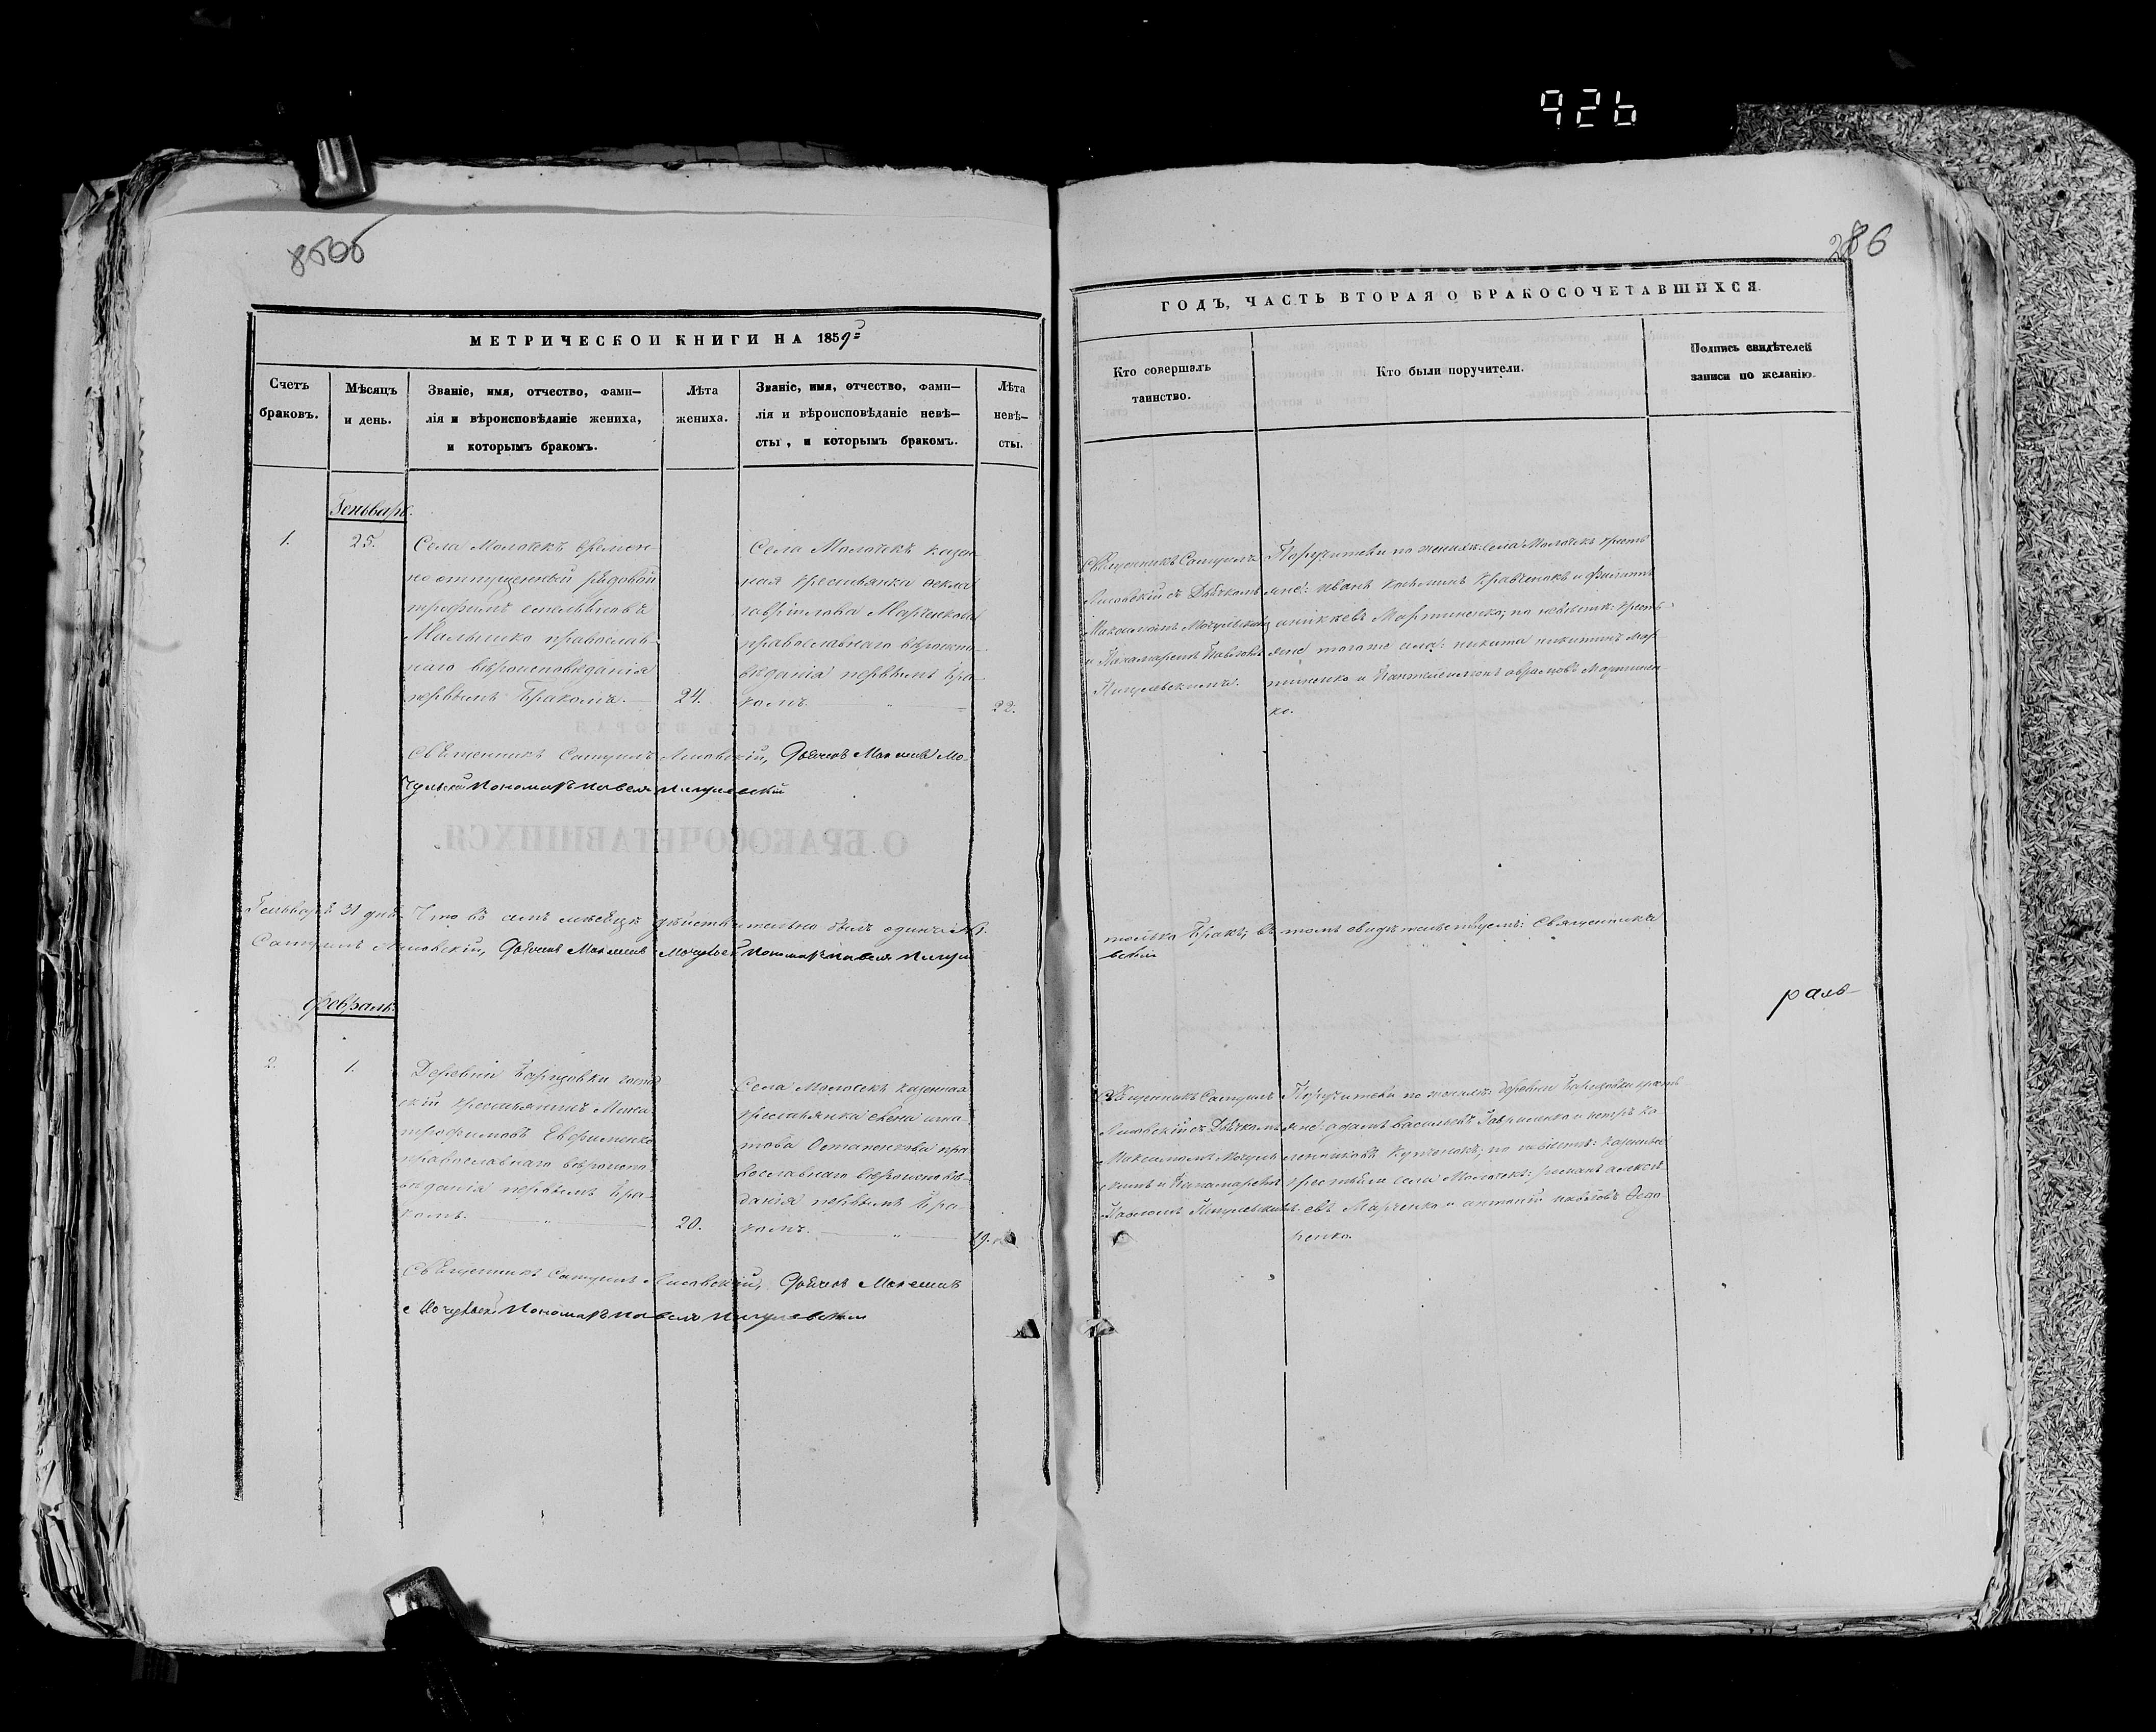 926
286
МЕТРИЧЕСКОЙ КНИГИ НА 1859й
ГОДЪ, ЧАСТЬ ВТОРАЯ О БРАКОСОЧЕТАВШИХСЯ.
Счетъ
браковъ.
Мѣсяцъ
и день.
Званіе, имя, отчество, фами–
лія и вѣроисповѣданіе жениха,
и которымъ бракомъ.
Лѣта
жениха.
Званіе, имя, отчество, фами–
лія и вѣроисповѣданіе невѣ–
сты, и которымъ бракомъ.
Лѣта
невѣ–
сты.
Кто совершалъ
таинство.
Кто были поручители.
Подпись свидѣтелей
записи по желанію.
Генварь.
1.
25.
Села Молочекъ времен-
но отпущенный рядовой
трофимъ емельяновъ
Малышко православ-
наго вѣроисповѣданія
первымъ бракомъ.
24.
Села Молочекъ казен-
ная крестьянка
гавріилова Марченкова
православнаго вѣроиспо-
вѣданія первымъ бра-
комъ.
22.
Священникъ Самуилъ
Лисовскій съ Дьячкомъ
Максимомъ Мочульскимъ
и Пономаремъ Павломъ
Пигулевскимъ.
Поручители по женихѣ: села Молочекъ кресть
яне: иванъ Кравченокъ и филиппъ
Мартиненко; по невѣстѣ: кресть-
яне того же села: никита никитинъ Мар-
тиненко и Пантелеимонъ абрамовъ Мартинен
ко.
Священникъ Самуилъ Лисовскій, Дьячокъ Максимъ Мо-
чульскій Пономарь Павелъ Пигулевскій
Генваря 31 дня. Что въ семъ мѣсяцѣ дѣйствительно былъ одинъ
только бракъ, въ томъ свидѣтельствуемъ: Священникъ
Самуилъ Лисовскій, Дьячокъ Максимъ Мочульскій Пономарь Павелъ Пигуле
вскій
Февраль.
раль
2.
1.
Деревни Барщовки
скій крестьянинъ
трофимовъ Ефименко
православнаго вѣроиспо-
вѣданія первымъ бра-
комъ.
20.
Села Молочекъ казенная
крестьянка елена
Остапенкова пра
вославнаго вѣроисповѣ-
данія первымъ бра-
комъ.
19.
Священникъ Самуилъ
Лисовскій съ Дьячкомъ
Максимомъ Мочуль
скимъ и Пономаремъ
Павломъ Пигулевскимъ.
Поручители по женихѣ: деревни Барщовки кресть
яне: адамъ васильевъ Гавриленко и петръ
по невѣстѣ: казенные
крестьяне села Молочекъ: романъ алексѣ
евъ Марченко и антоній павловъ Федо-
ренко.
Священникъ Самуилъ Лисовскій, Дьячокъ Максимъ
Мочульскій Пономарь Павелъ Пигулевскій